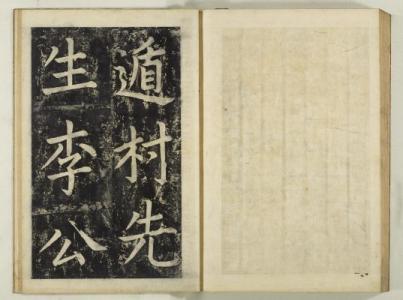 遁村先
生李公